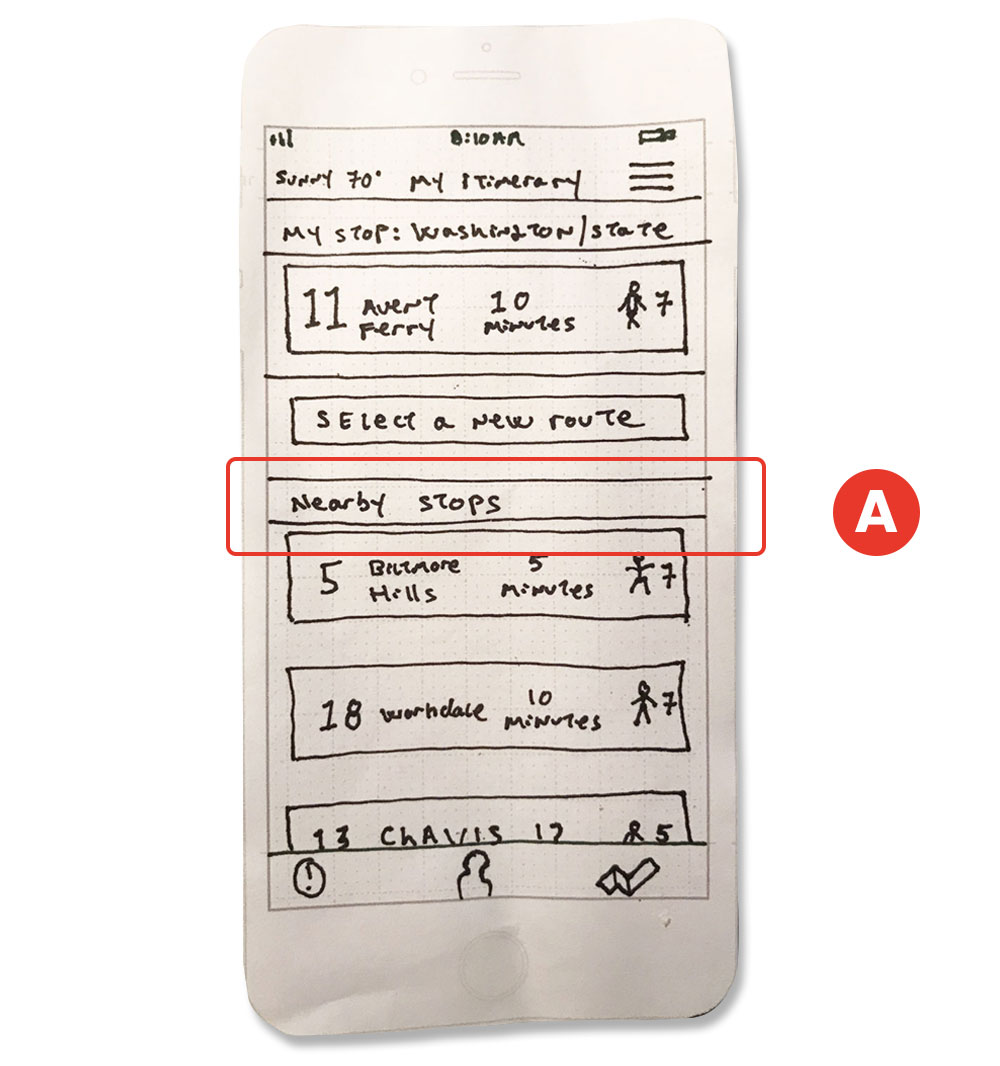 8:10AM
Sunny 70° My Itinerary
My stop: Washington/State
11 Avery Ferry 10 Minutes 7
Select a new route
Nearby Stops
A
5 Biltmore Hills 5 Minutes 7
18 10 Minutes 7
13 Chavis 5
!